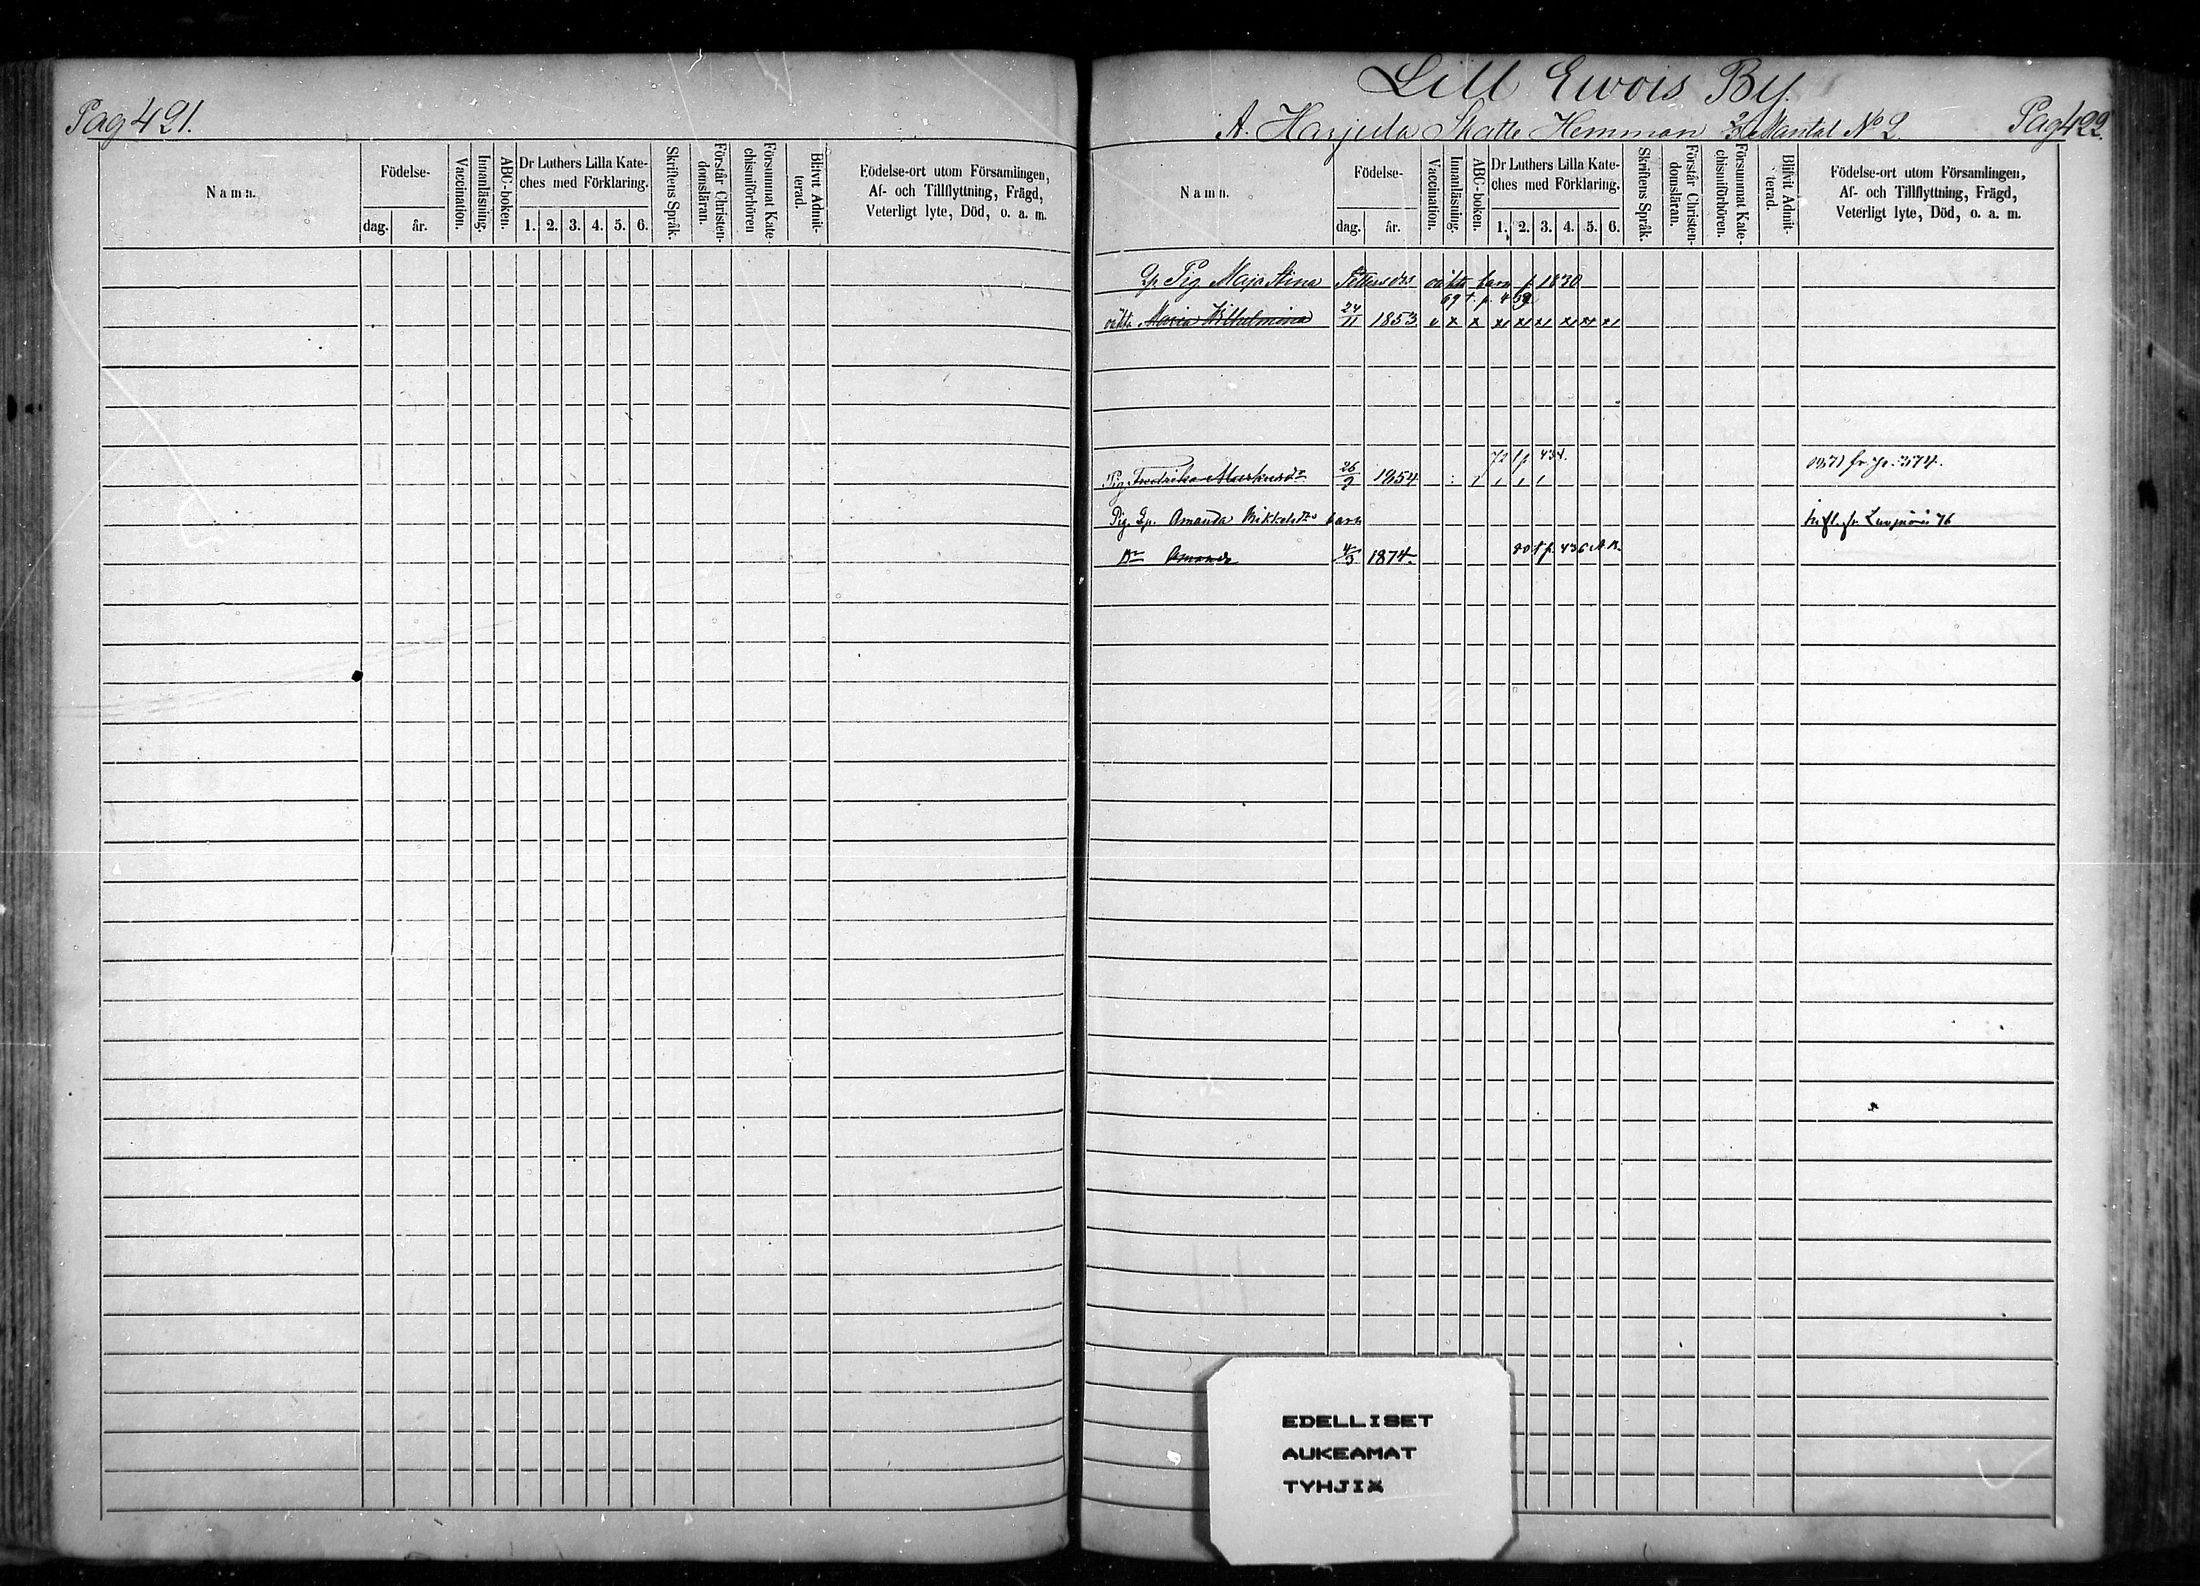 Pag 421.
Namn.
Födelse-
dag.
år.
Vaccination.
Innanläsning.
ABC-boken.
Dr Luthers Lilla Kate-
ches med Förklaring.
1. 2. 3. 4. 5. 6.
Skriftens Språk.
Förstår Christen-
domsläran.
Försummat Kate-
chismiförhören
Blifvit Admit-
terad.
Födelse-ort utom Församlingen,
Af- och Tillflyttning, Frägd,
Veterligt lyte, Död, o. a. m.
Lill Ewois By.
A. Harjula Skatte Hemman Mantal No 2.
Pag 422.
Namn.
Födelse-
dag.
år.
Vaccination.
Innanläsning.
ABC-boken.
Dr Luthers Lilla Kate-
ches med Förklaring.
1. 2. 3. 4. 5. 6.
Skriftens Språk.
Förstår Christen-
domsläran.
Försummat Kate-
chismiförhören.
Blifvit Admit-
terad.
Födelse-ort utom Församlingen,
Af- och Tillflyttning, Frägd,
Veterligt lyte, Död, o. a. m.
Pig Maja Stina oäkta barn
oäkta Maria Wilhelmina 24/11 1853
72 p 434.
Pig Fredrika 26/2 1854 fr p. 374.
Pig Amanda barn 76
Dr Amanda 4/3 1874. 80 p. 436
EDELLISET
AUKEAMAT
TYHJIÄ